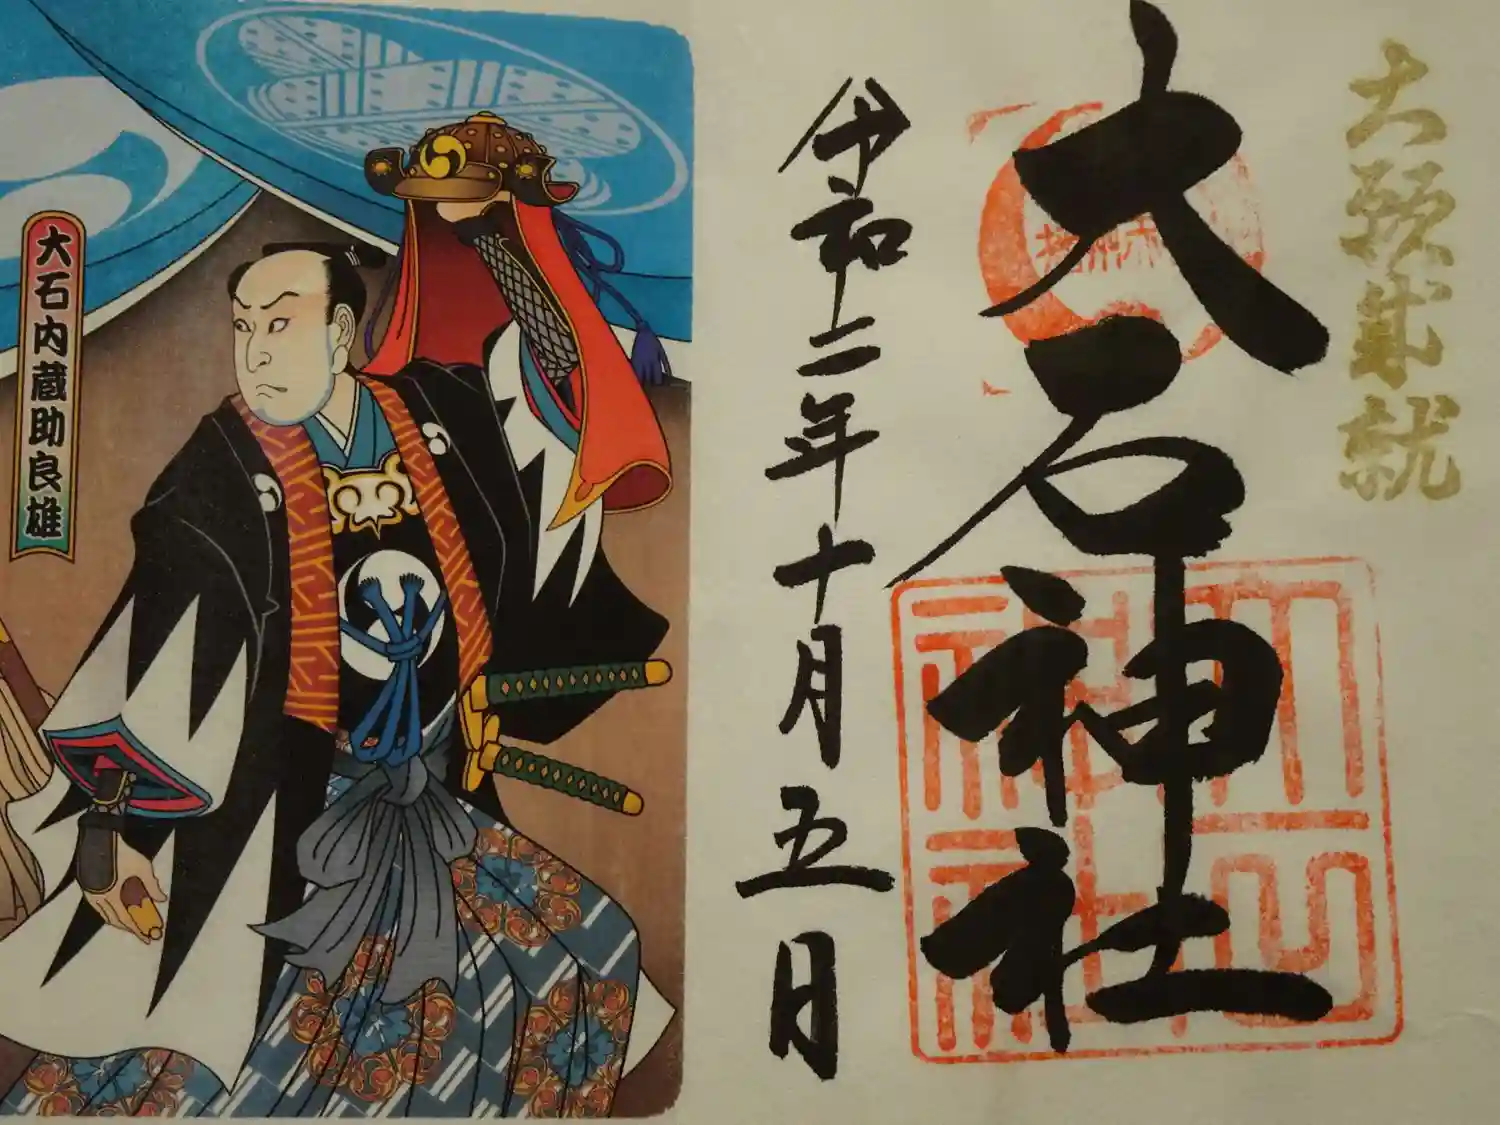 大願成就
大石神社
令和二年十月五日
大石内蔵助良雄
播州赤
大石神社